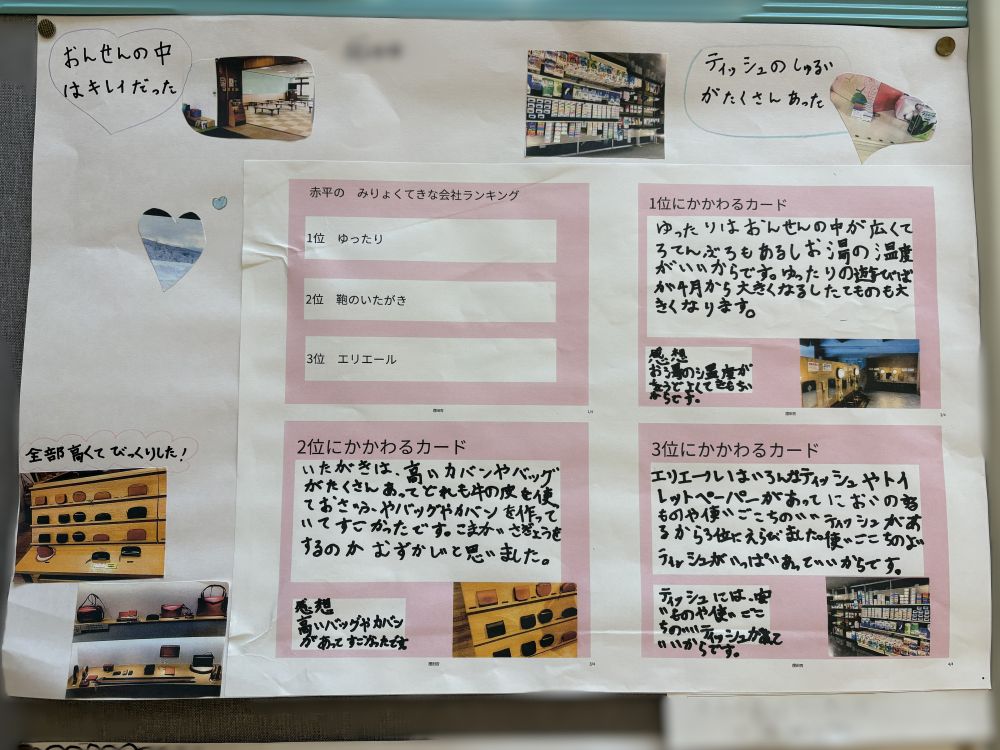 おんせんの中
はキレイだった
ティッシュのしゅるい
がたくさんあった
赤平の みりょくてきな会社ランキング
1位 ゆったり
2位 鞄のいたがき
3位 エリエール
1位にかかわるカード
ゆったりはおんせんの中が広くて
ろてんぶろもあるしお湯の温度
がいいからです。ゆったりの遊びば
が4月から大きくなるしたてものも大
きくなります。
感想
お湯の温度が
ちょうどよくてきもちい
からです。
全部高くてびっくりした!
2位にかかわるカード
いたがきは、高いカバンやバッグ
がたくさんあってどれも牛の皮を使っ
ておさいふやバッグやカバンを作って
いてすごかったです。こまかいさぎょうを
するのがむずかしいと思いました。
感想
高いバッグやカバン
があってすごかったです
3位にかかわるカード
エリエールはいろんなティッシュやトイ
レットペーパーがあってにおいの
ものや使いごこちのいいティッシュがあ
るから3位にえらびました。使いごこちのよい
ティッシュがいっぱいあっていいからです。
ティッシュには、安
いものや使いごこ
ちのいいティッシュがあって
いいからです。
1/4
2/4
3/4
4/4